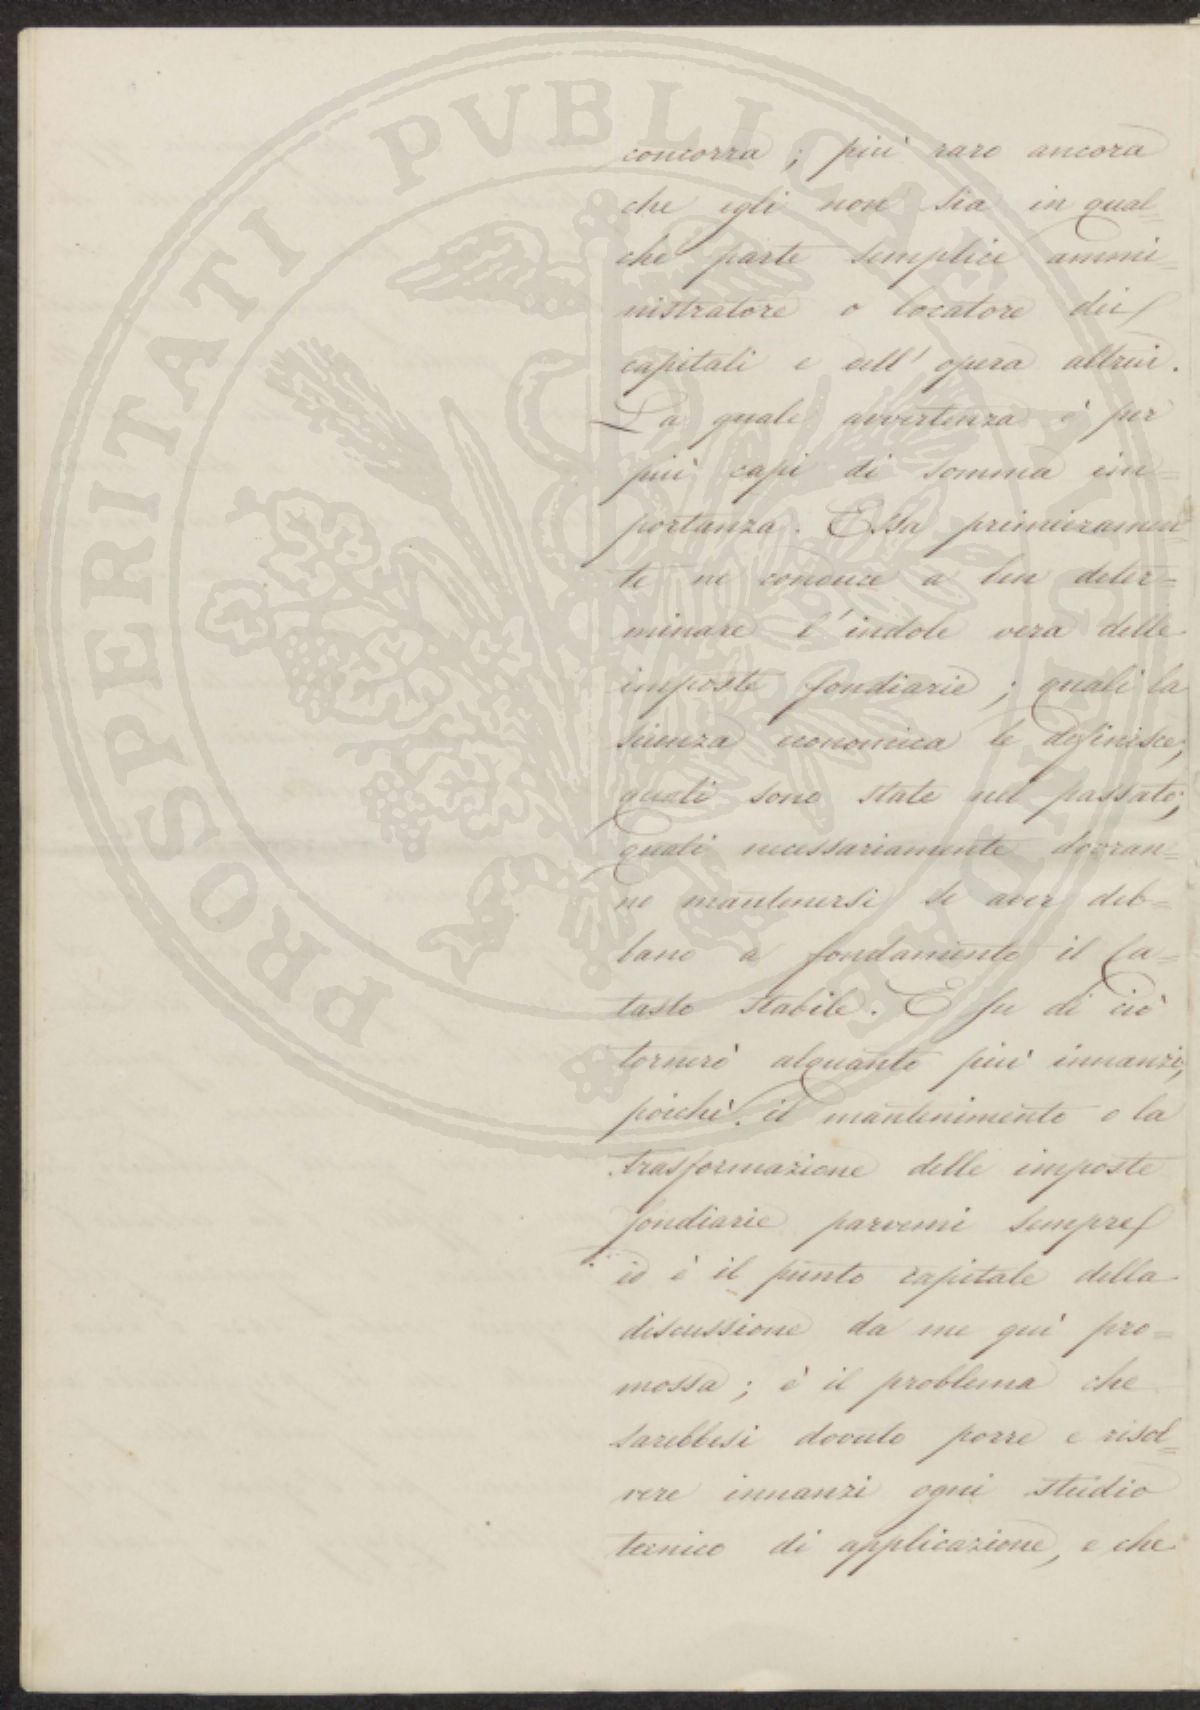 PROSPERITATI PVBLICAE AVGENDAE
concorra; più raro ancora
che egli non sia in qual=
che parte semplice ammi=
nistratore o locatore dei
capitali e dell'opera altrui.
La quale avvertenza è per
più capi di somma im=
portanza. Essa primieramen=
te ne conduce a ben deter=
minare l'indole vera delle
imposte fondiarie; quali la
scienza economica le definisce;
quali sono state nel passato;
quali necessariamente dovran=
no mantenersi se aver deb=
bano a fondamento il Ca=
tasto stabile. E su di ciò
tornerò alquanto più innanzi;
poichè il mantenimento o la
trasformazione delle imposte
fondiarie parvemi sempre
ed è il punto capitale della
discussione da me quì pro=
mossa; è il problema che
sarebbesi dovuto porre e risol=
vere innanzi ogni studio
tecnico di applicazione, e che